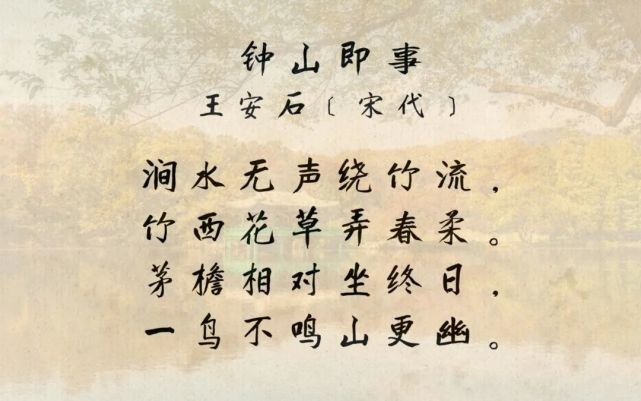 钟山即事
王安石〔宋代〕
涧水无声绕竹流，
竹西花草弄春柔。
茅檐相对坐终日，
一鸟不鸣山更幽。